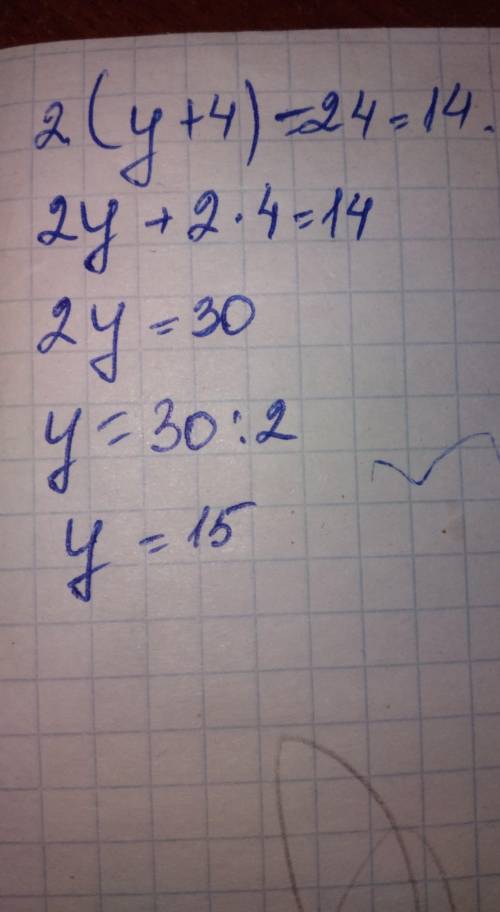 2(y+4)-24=14.
2y+2·4=14
2y=30
y=30:2
y=15